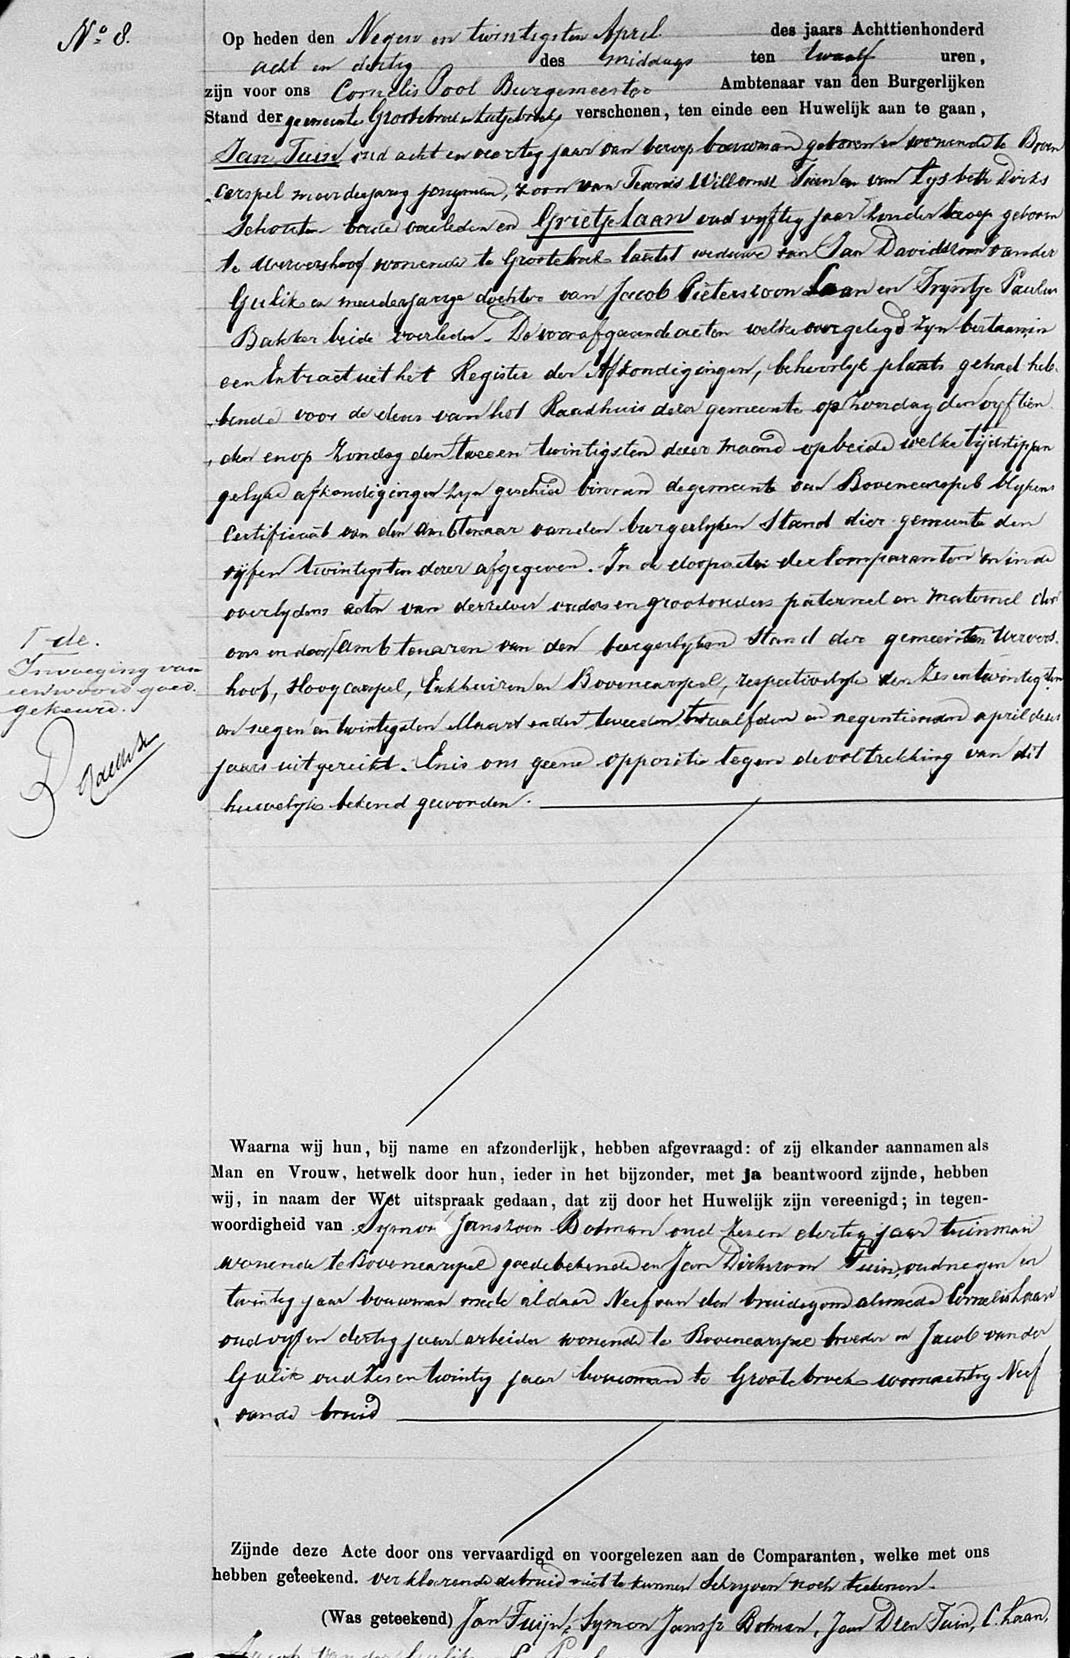 No 8.
Op heden den Negen en twintigsten April des jaars Achttienhonderd
acht en dertig des middags ten twaalf uren,
zijn voor ons Cornelis Pool Burgemeester Ambtenaar van den Burgerlijken
Stand der gemeente Grootebroek en Lutjebroek verschenen, ten einde een Huwelijk aan te gaan,
Jan Tuin oud acht en veertig jaar van beroep bouwman geboren en wonende te Boven
carspel meerderjarig jongman, Zoon van Teunis Willemsz Tuin en van Lysbeth Dirks
Schouten beide overleden en Grietje Laan oud vyftig jaar Zonder beroep geboren
te Wervershoof wonende te Grootebroek laatst weduwe van Jan Davidszoon van der
Gulik en meerderjarige dochter van Jacob Pieterszoon Laan en Tryntje Paulus
Bakker beide overleden. De voorafgaande acten welke overgelegd zyn bestaan in
een Extract uit het Register der Afkondigingen, behoorlyk plaats gehad heb-
bende voor de deur van het Raadhuis dezer gemeente op Zondag den vyftien
den en op Zondag den twee en twintigsten dezer maand op beide welke tijdstippen
gelyke afkondigingen zyn geschied binnen de gemeente van Bovencarspel blykens
Certificaat van den Ambtenaar van den burgerlyken Stand dier gemeente den
vyf en twintigsten dezer afgegeven. In de doopacten der Comparanten en in de
overlydens acten van derzelver ouders en grootouders paterneel en materneel door
ons en door ⌈ambtenaren van den burgerlyken Stand der gemeenten Wervers
hoof, Hoogcarspel, Enkhuizen en Bovencarspel, respectivelyk den Zes en twintigsten
en negen en twintigsten Maart en den tweeden, twaalfden en negentienden april dezes
jaars uitgereikt. En is ons geene oppositie tegen de voltrekking van dit
huwelyk bekend geworden.
⌈ de.
Invoeging van
een woord goed-
gekeurd.
Waarna wij hun, bij name en afzonderlijk, hebben afgevraagd: of zij elkander aannamen als
Man en Vrouw, hetwelk door hun, ieder in het bijzonder, met ja beantwoord zijnde, hebben
wij, in naam der Wet uitspraak gedaan, dat zij door het Huwelijk zijn vereenigd; in tegen-
woordigheid van Symon Janszoon Botman oud Zes en dertig jaar tuinman
wonende te Bovencarspel goede bekende en Jan Dirkszoon Tuin, oud negen en
twintig jaar bouwman mede aldaar Neef van den bruidegom alsmede Cornelis Laan
oud vyf en dertig jaar arbeider wonende te Bovencarspel broeder en Jacob van der
Gulik oud Zes en twintig jaar bouwman te Grootebroek woonachtig Neef
van de bruid
Zijnde deze Acte door ons vervaardigd en voorgelezen aan de Comparanten, welke met ons
hebben geteekend. verklarende de bruid niet te kunnen Schryven noch teekenen.
(Was geteekend) Jan Tuijn, Symon Jansz Botman, Jan Tuin, C. Laan,